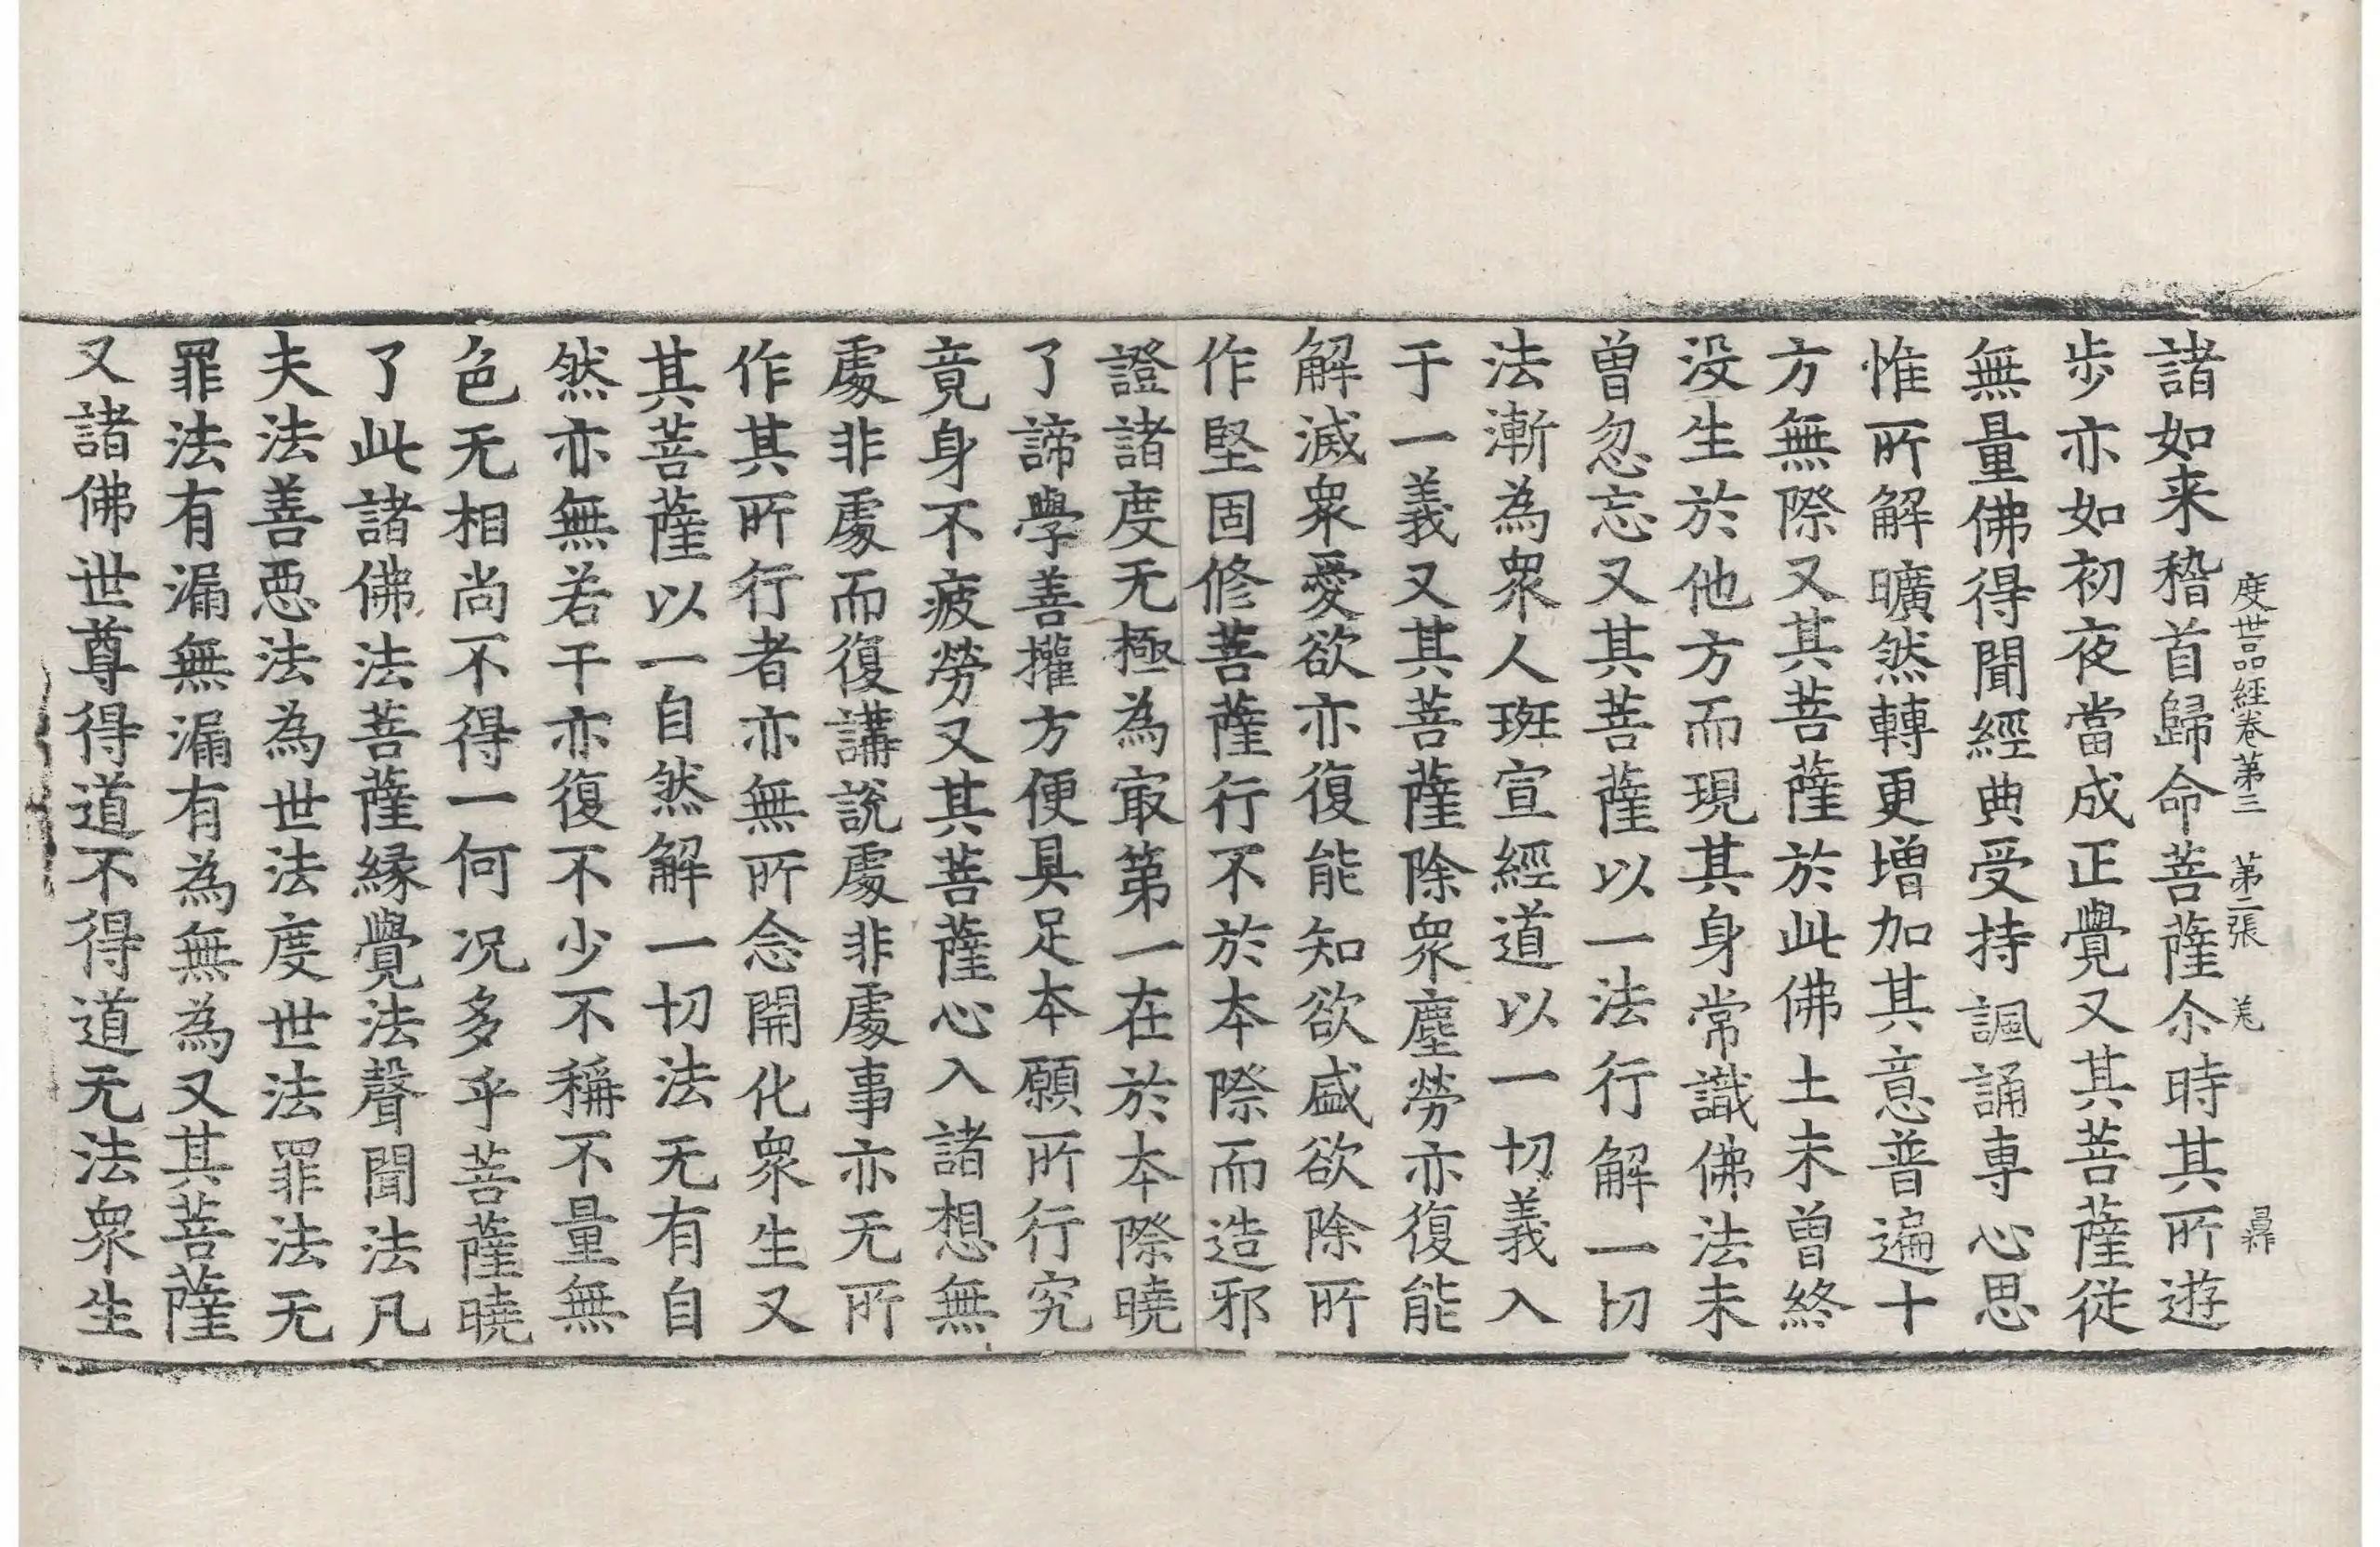 度世品經卷第三　第二張　羌
諸如来稽首歸命菩薩尒時其所遊
步亦如初夜當成正覺又其菩薩從
無量佛得聞經典受持諷誦專心思
惟所解曠然轉更增加其意普遍十
方無際又其菩薩於此佛土未曾終
没生於他方而現其身常識佛法未
曾忽忘又其菩薩以一法行解一切
法漸為衆人班宣經道以一切義入
于一義又其菩薩除衆塵勞亦復能
解滅衆愛欲亦復能知欲盛欲除所
作堅固修菩薩行不於本際而造邪
證諸度无極為㝡第一在於本際曉
了諦學善攉方便具足本願所行究
竟身不疲勞又其菩薩心入諸想無
處非處而復講說處非處事亦无所
作其所行者亦無所念開化衆生又
其菩薩以一自然解一切法无有自
然亦無若干亦復不少不稱不量無
色无相尚不得一何况多乎菩薩曉
了此諸佛法菩薩緣覺法聲聞法凡
夫法善惡法為世法度世法罪法无
罪法有漏無漏有為無為又其菩薩
又諸佛世尊得道不得道无法衆生